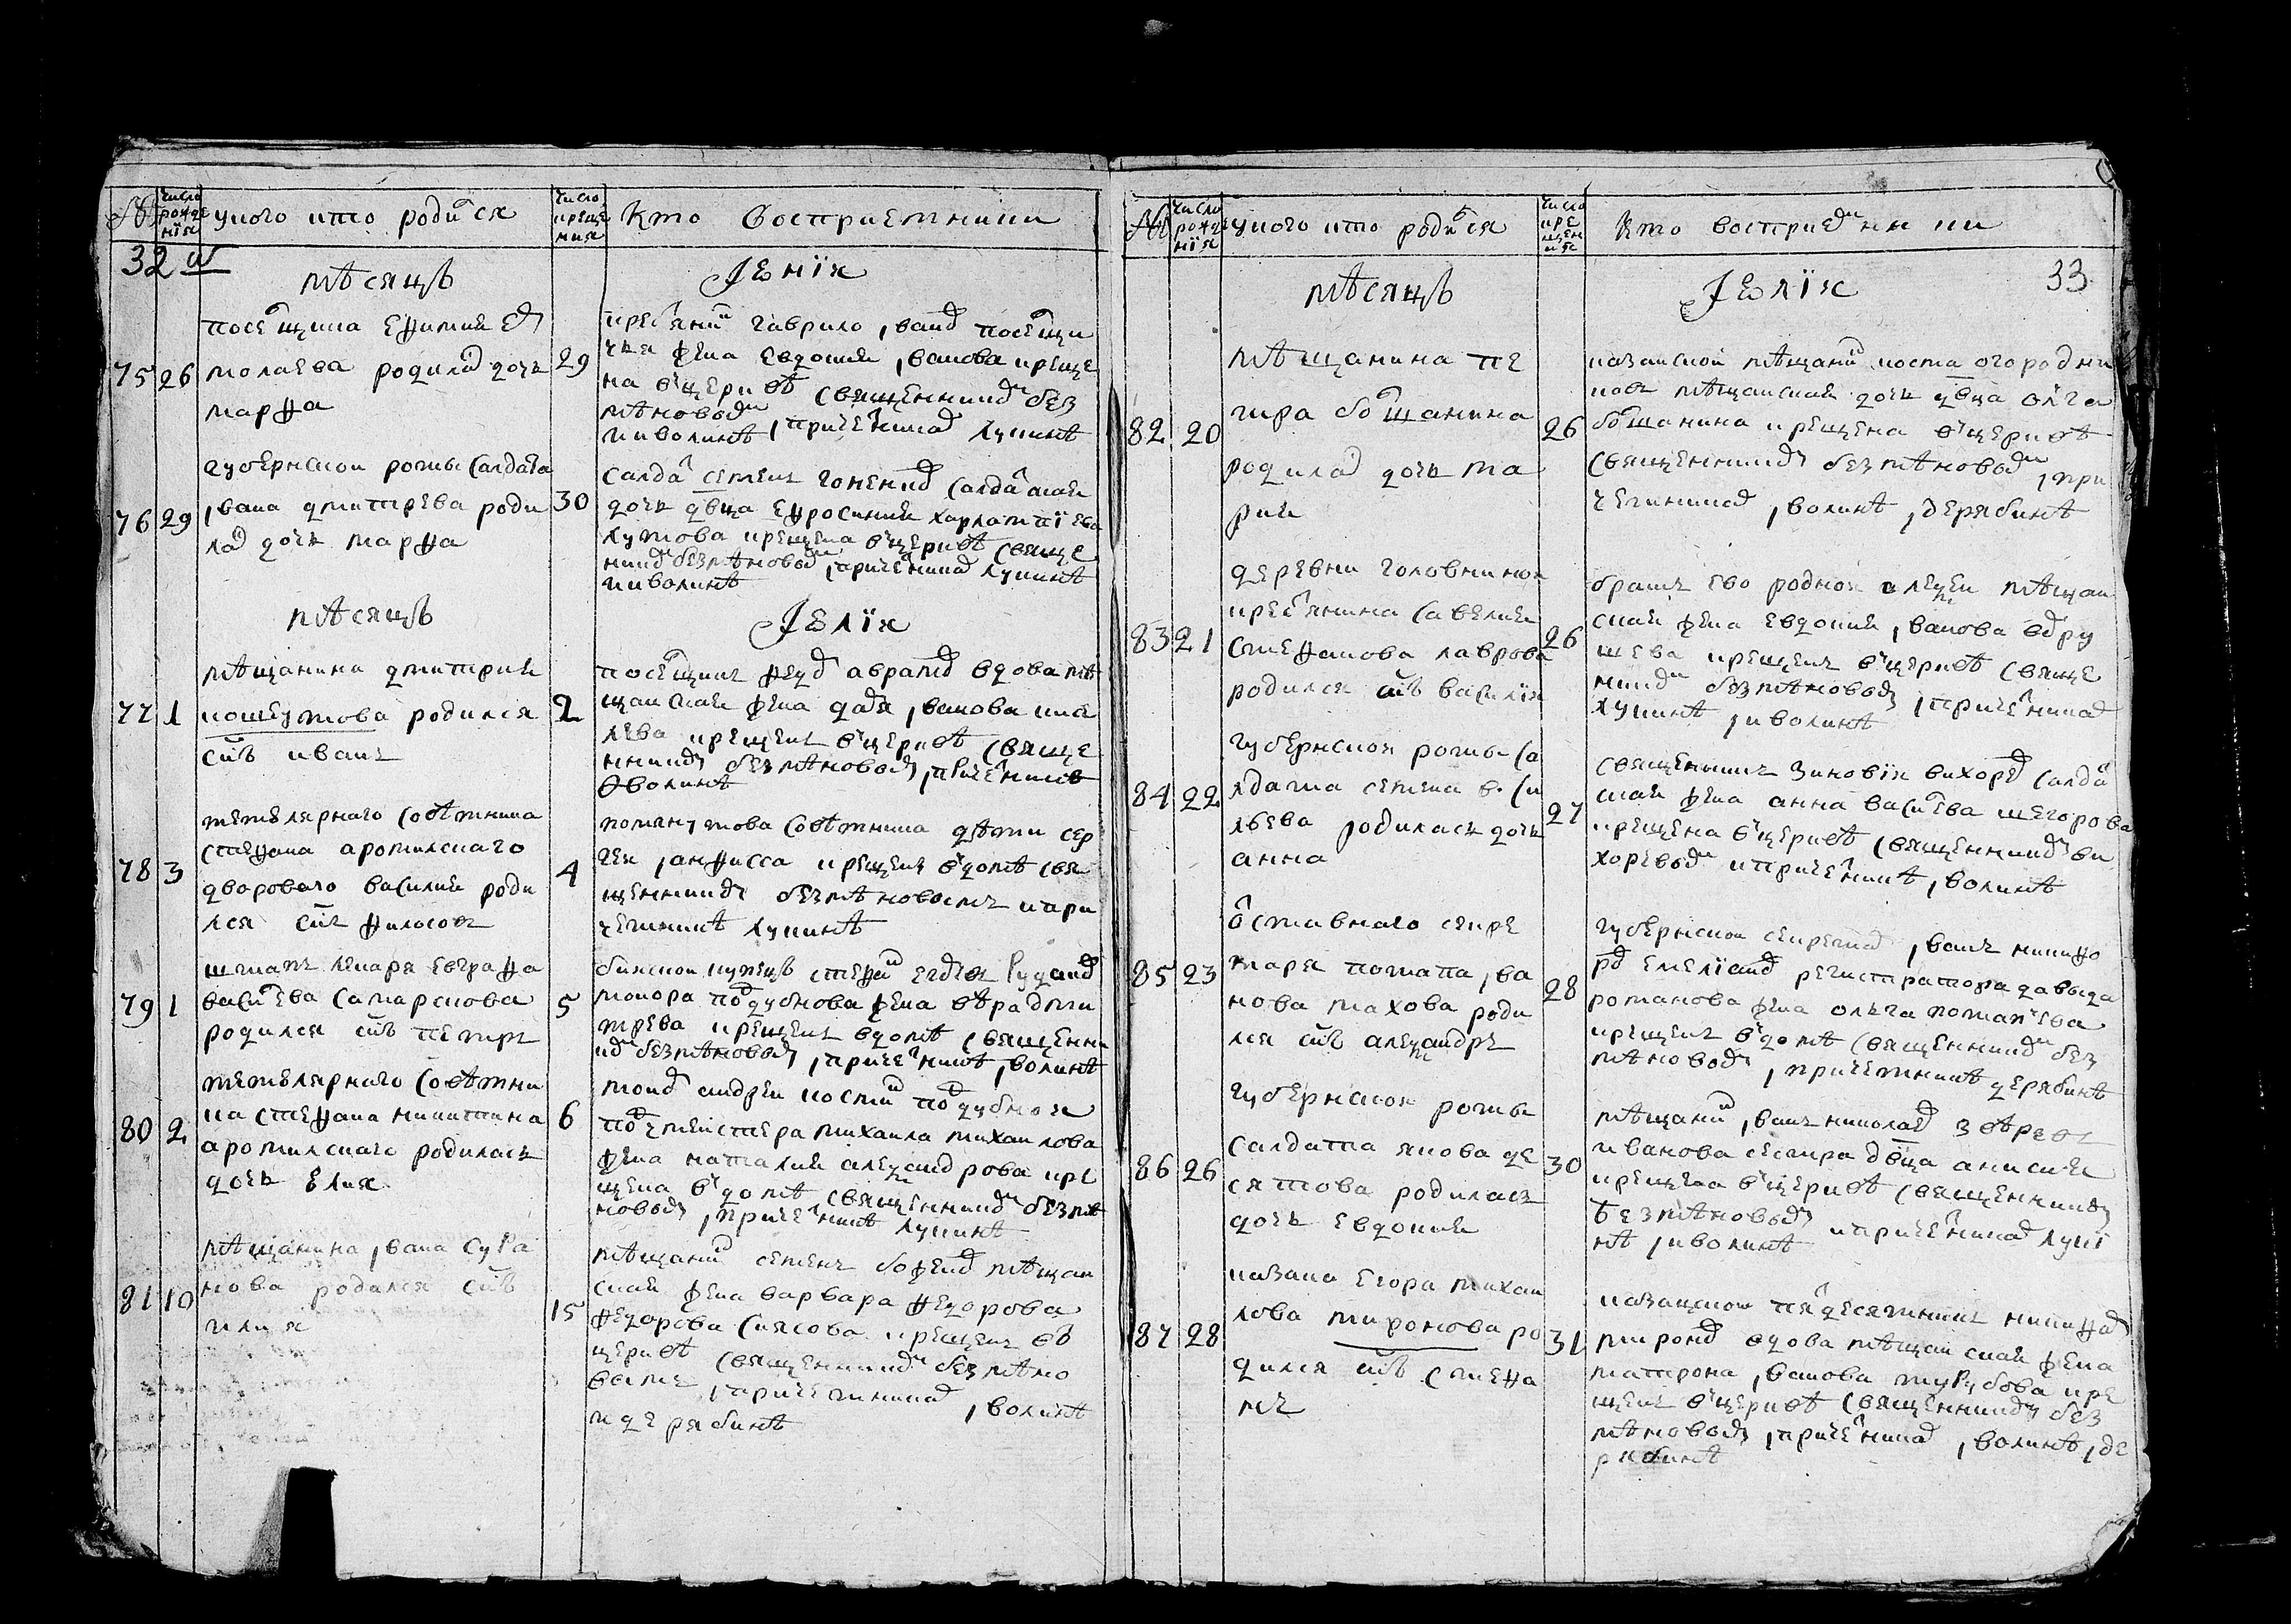 №
число рожде нїя
у кого кто родился
число креще ния
Кто восприемники
32
мѣсяцъ
Іюнїя
75
26
посецщика Ефимия Ер
молаева родилас дочь
марфа
29
крестьянин гаврило иванов посецщи
чья жена евдокия иванова креще
на в церкве священником без
меновым и причетником лукиным
и волинѣ
76
29
губернской роты салдата
ивана дмитрева роди
лас дочь марфа
30
салдат семенъ
дочь двца ефросиния харлампїева
кутова крещена в церкве священ
ником безменовым и причетником лукинѣ
и волинѣ
мѣсяцъ
Іюлїя
77
1
мѣщанина дмитрия
кошкутова родился
снъ иванъ
2
посецщикъ федор аврамов вдова мѣ
щанская жена даря иванова кисе
лева крещенъ в церкве священ
ником безменовым и причетником
волинѣ
78
3
титулярного советника
стефана аромилского
дворового василия роди
лся снъ филосовъ
4
помянутова советника дѣти сер
геи и анфисса крещенъ в доме свя
щенником безмѣновымъ и при
четникѣ лукинѣ
79
1
штапъ лекаря евграфа
василева самарскова
родился снъ петръ
5
бинской купецъ стефан егоров рудаков
моиора поддубнова жена вѣра дми
трева крещенъ в доме священни
ком безменовым и причетником волинѣ
80
2
титулярного советни
ка стефана никитина
аромилскаго родиласъ
дочь Елия
6
моиор андреи костин поддубнои
почтмеистера михаила михаилова
жена наталия александрова кре
щена в доме священником безме
новым и причетником лукинѣ
81
10
мѣщанина ивана сура
нова родился снъ
илия
15
мѣщанин семенъ боженов мѣщан
ская жена варвара федорова
федорова сиясова крещенъ въ
церкве священником безмено
вымъ и причетником волинѣ
и дерябинѣ
№
число рожд нїя
у кого кто родился
число кре щен ия
Кто восприемники
33
мѣсяцъ
Іюлїя
82
20
мѣщанина пе
тра боршанина
родилас дочь ма
рия
26
казанской мѣщанин коста огородни
ковъ мѣщанская дочь двца олга
боршанина крещена в церкве
священником безмѣновым и при
четником волинѣ и дерябинѣ
83
21
деревни головнинои
крестьянина савелия
стефанова лаврова
родился снъ василїи
26
братъ ево роднои алексеи мѣщан
ская жена евдокия иванова
шева крещенъ в церкве священ
ником безмѣновым и причетником
лукинѣ и волинѣ
84
22
губернскои роты са
лдата семена васи
льева родиласъ дочь
анна
27
священникъ зиновїи вихорев салдат
ская жена анна василева шегорова
крещена в церкве священником ви
хоревым и причетникѣ волинѣ
85
23
отставнаго секре
таря потапа ива
нова махова роди
лся снъ александръ
28
губернскои секретар иванъ никифо
ров емелїанов регистратора давыда
романова жена олга потапева
крещенъ в доме священником без
мѣновым и причетникѣ дерябинѣ
86
26
губернскои роты
салдата якова де
сятова родиласъ
дочь евдокия
30
мѣщанин иванъ николаев зверевъ
иванова сестра двца анисия
крещена в церкве священником
безмѣновым и причетником луки
нѣ и волинѣ
87
28
казака егора михаи
лова миронова ро
дился снъ стефа
нъ
31
казацкои пятдесятникъ никифор
миронов вдова мѣщанская жена
матрона иванова турубова кре
щенъ в церкве священником без
мѣновым и причетником волинѣ и де
рябинѣ